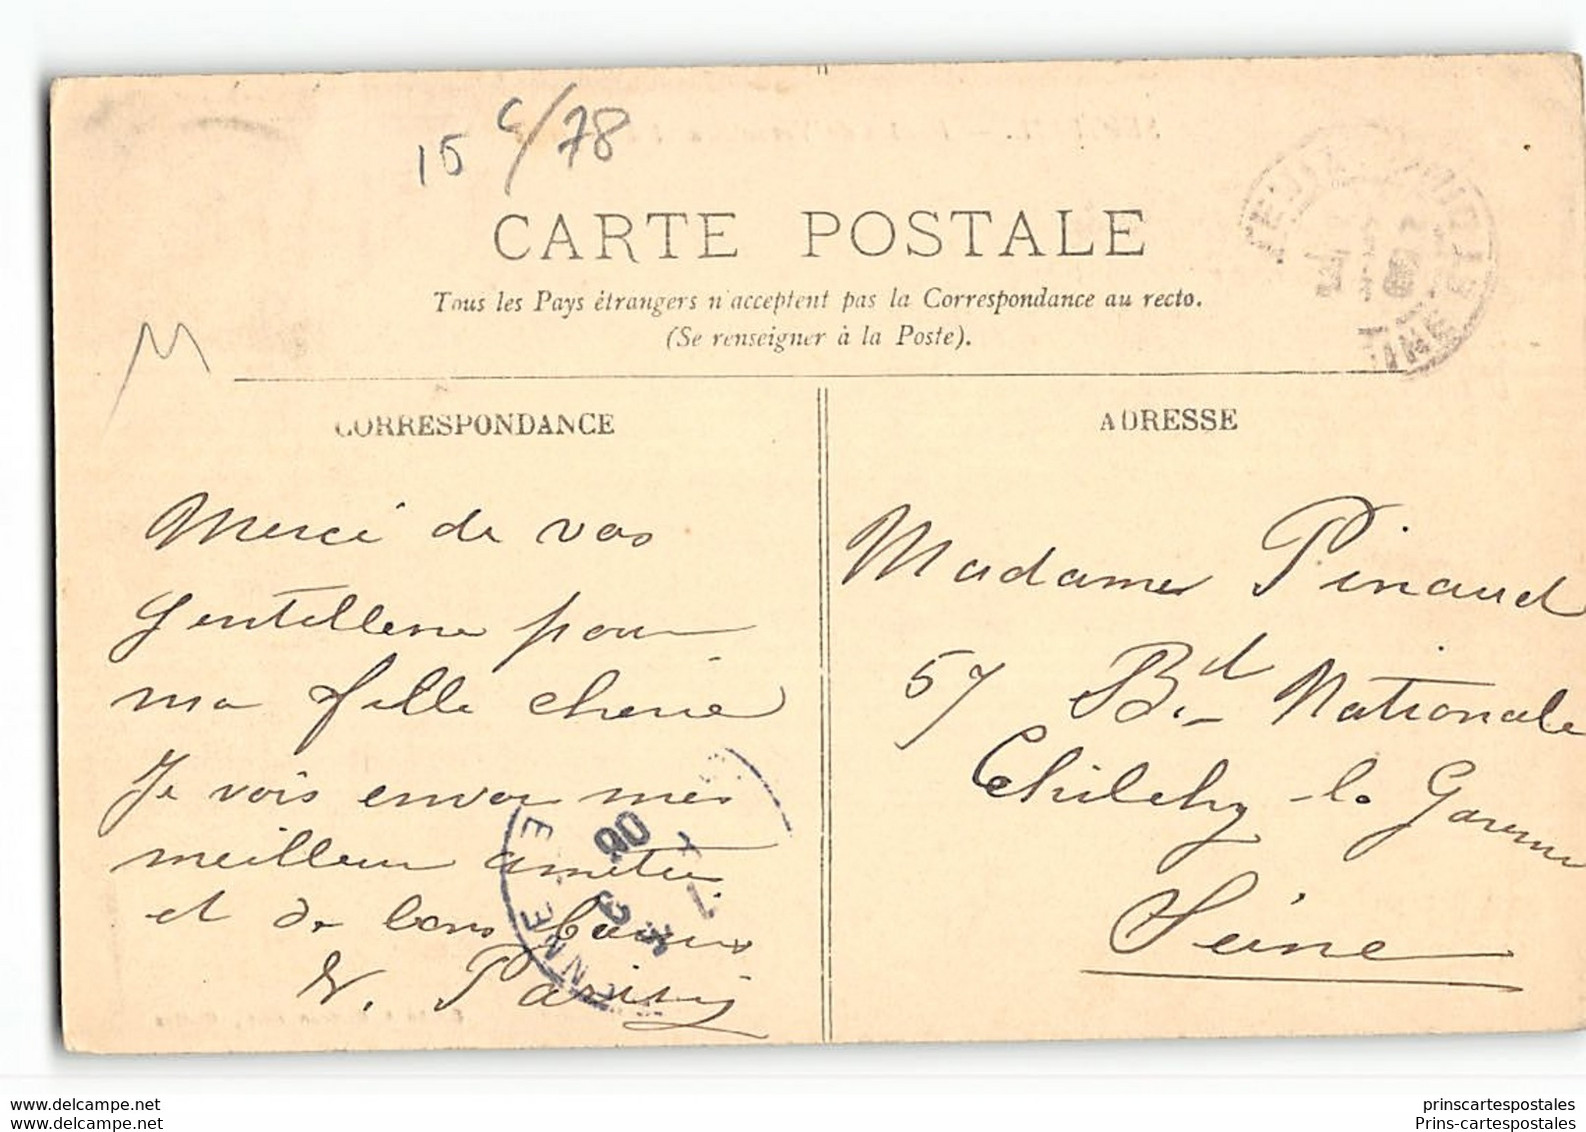 15 c/78
CARTE POSTALE
Tous les Pays étrangers n'acceptent pas la Correspondance au recto.
(Se renseigner à la Poste).
M
CORRESPONDANCE
Merci de vos
gentillesse pour
ma fille cherie
Je vois envoi mes
meilleur amitiés
et de bons baisers
V. Parisis
ADRESSE
Madame Pinaud
57 Bd Nationale
Chilchy-la Garenne
Seine
www.delcampe.net
www.delcampe.net
prinscartespostales
Prins-cartespostales